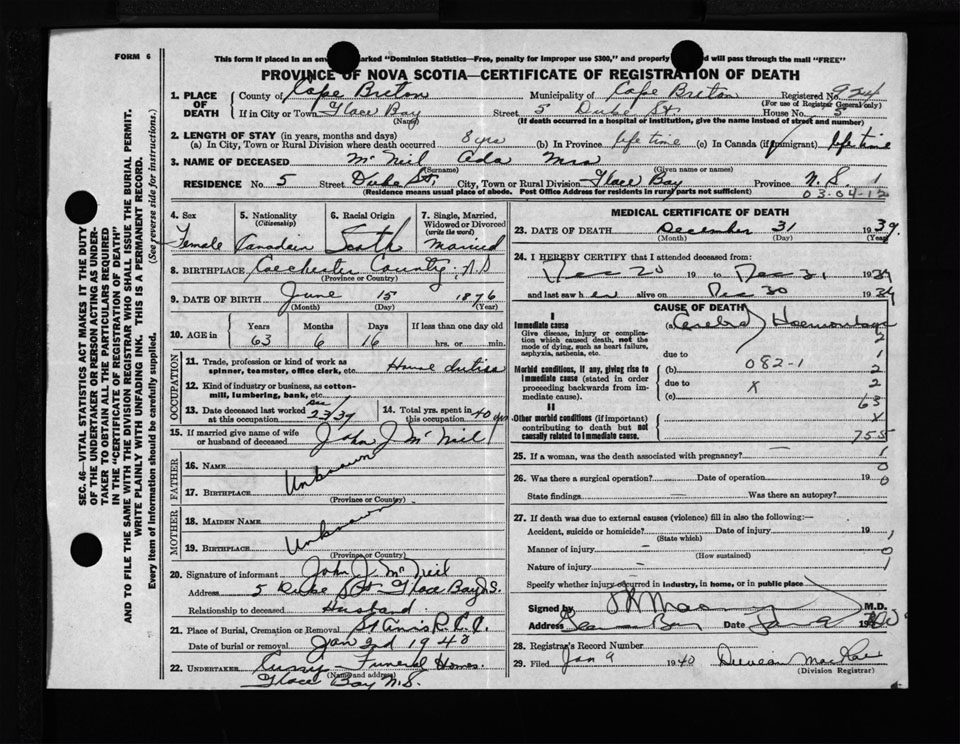 FORM 6
This form if placed in an env rked "Dominion Statistics—Free, penalty for improper use $300," and properly d will pass through the mail "FREE"
PROVINCE OF NOVA SCOTIA—CERTIFICATE OF REGISTRATION OF DEATH
1. PLACE OF DEATH
County of Cape Breton Municipality of Cape Breton Registered No. 924
(For use of Registrar General only)
If in City or Town Glace Bay Street 5 Duke St. House No. 5
(Name) (If death occurred in a hospital or institution, give the name instead of street and number)
2. LENGTH OF STAY (in years, months and days)
(a) In City, Town or Rural Division where death occurred 8 yrs (b) In Province life time (c) In Canada (if immigrant) life time
3. NAME OF DECEASED McNeil Ada Mrs
(Surname) (Given name or names)
RESIDENCE No. 5 Street Duke St. City, Town or Rural Division Glace Bay Province N.S. 1
(Residence means usual place of abode. Post Office Address for residents in rural parts not sufficient) 03-04-12
4. Sex Female
5. Nationality (Citizenship) Canadian
6. Racial Origin Scotch
7. Single, Married, Widowed or Divorced (write the word) Married
8. BIRTHPLACE Colchester County, N.S
(Province or Country)
9. DATE OF BIRTH June 15 1876
(Month) (Day) (Year)
10. AGE in Years Months Days If less than one day old
63 6 16 hrs. or min.
OCCUPATION
11. Trade, profession or kind of work as spinner, teamster, office clerk, etc. House duties
12. Kind of industry or business, as cotton-mill, lumbering, bank, etc.
13. Date deceased last worked at this occupation Dec 23/39
14. Total yrs. spent in this occupation 40 yrs
15. If married give name of wife or husband of deceased John J McNeil
FATHER
16. NAME Unknown
17. BIRTHPLACE
(Province or Country)
MOTHER
18. MAIDEN NAME Unknown
19. BIRTHPLACE
(Province or Country)
20. Signature of informant John J McNeil
Address 5 Duke St Glace Bay N.S.
Relationship to deceased Husband
21. Place of Burial, Cremation or Removal St Anns
Date of burial or removal Jan 2nd 1940
22. UNDERTAKER Curry Funeral Homes.
(Name and address)
Glace Bay N.S.
MEDICAL CERTIFICATE OF DEATH
23. DATE OF DEATH December 31 1939.
(Month) (Day) (Year)
24. I HEREBY CERTIFY that I attended deceased from:
Dec 20 19 to Dec 31 1939
and last saw her alive on Dec 30 1939
CAUSE OF DEATH
I
Immediate cause (a) Cerebral Haemorrhage
Give disease, injury or complication which caused death, not the mode of dying, such as heart failure, asphyxia, asthenia, etc.
2
due to 1
Morbid conditions, if any, giving rise to immediate cause (stated in order proceeding backwards from immediate cause).
(b) 082-1 2
due to x 2
(c) 63
II
Other morbid conditions (if important) contributing to death but not causally related to immediate cause.
x
755
25. If a woman, was the death associated with pregnancy? 1
0
26. Was there a surgical operation? — Date of operation 19 0
State findings — Was there an autopsy?
27. If death was due to external causes (violence) fill in also the following:—
Accident, suicide or homicide? Date of injury 19 1
(State which)
Manner of injury — 0
(How sustained)
Nature of injury 1
Specify whether injury occurred in industry, in home, or in public place
Signed by M.D.
Address Bay Date Jan 9
28. Registrar's Record Number
29. Filed Jan 9 1940 Duncan MacRae
(Division Registrar)
SEC. 46—VITAL STATISTICS ACT MAKES IT THE DUTY
OF THE UNDERTAKER OR PERSON ACTING AS UNDER-
TAKER TO OBTAIN ALL THE PARTICULARS REQUIRED
IN THE "CERTIFICATE OF REGISTRATION OF DEATH"
AND TO FILE THE SAME WITH THE DIVISION REGISTRAR WHO SHALL ISSUE THE BURIAL PERMIT.
WRITE PLAINLY WITH UNFADING INK. THIS IS A PERMANENT RECORD.
Every item of information should be carefully supplied. (See reverse side for instructions.)